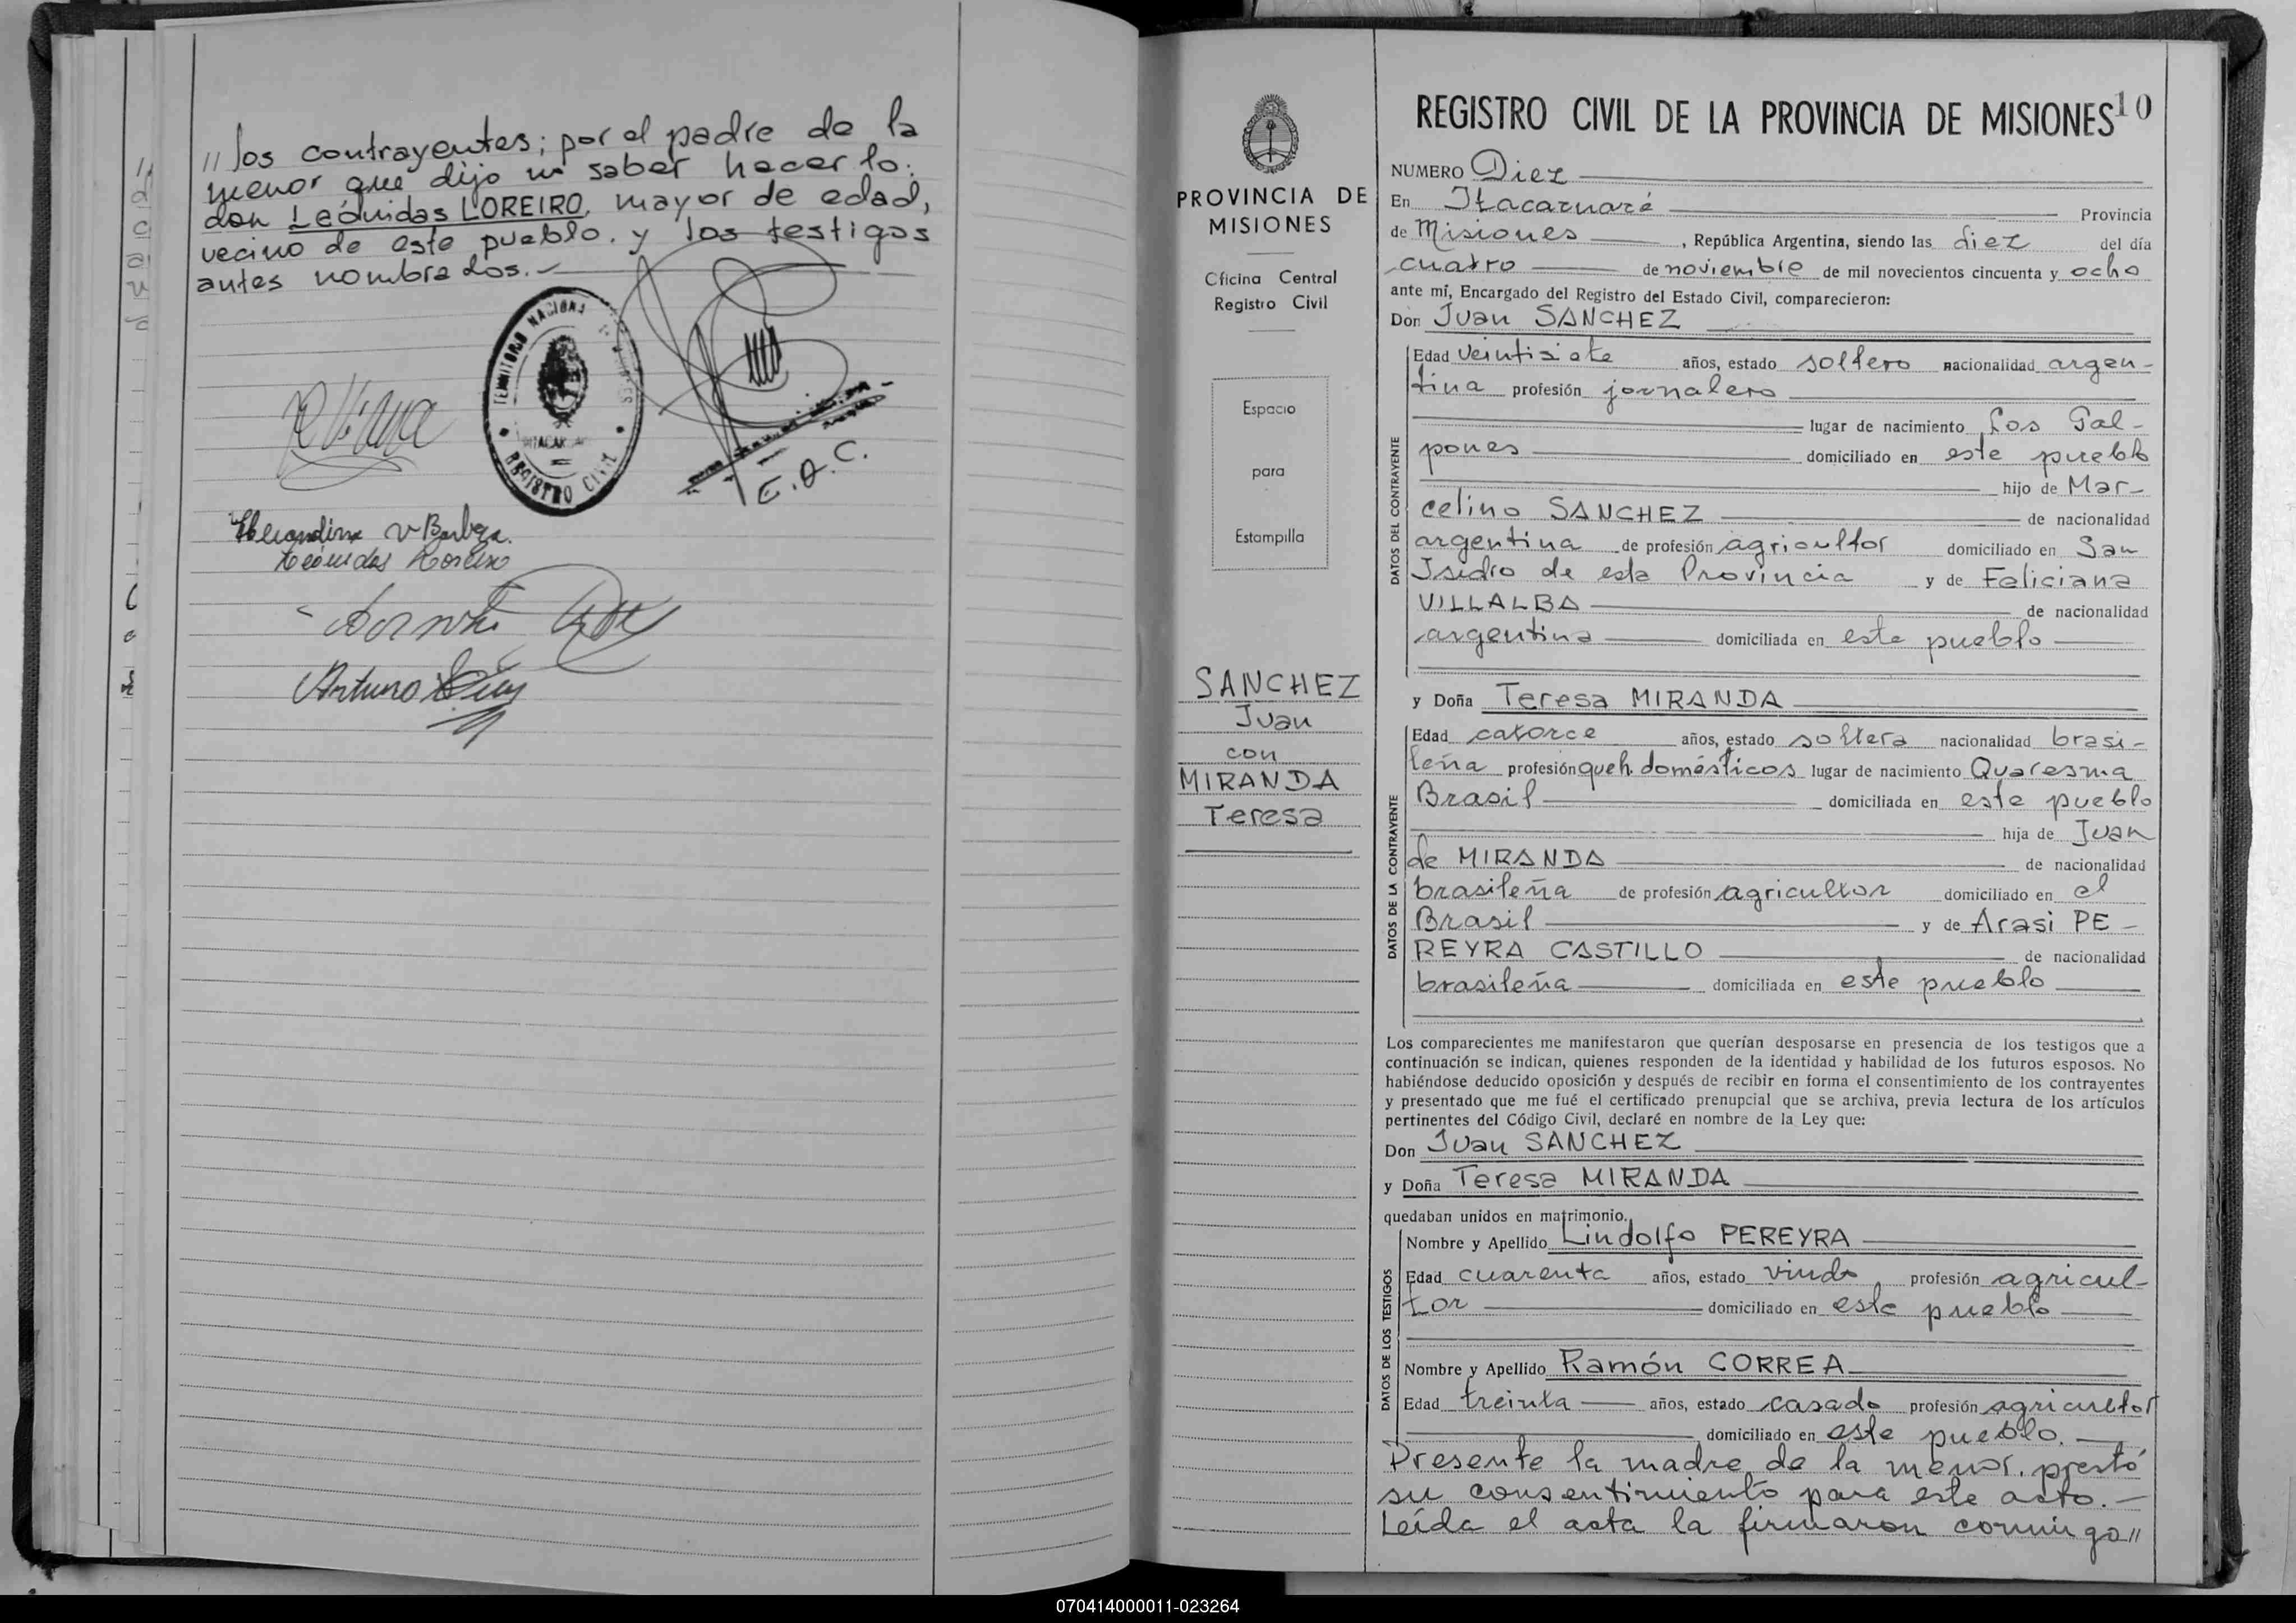 // los contrayentes; por el padre de la
menor que dijo no saber hacerlo:
don Leónidas LOREIRO, mayor de edad,
vecino de este pueblo. y los testigos
antes nombrados.-
TERRITORIO NACIONAL
REGISTRO CIVIL
E. O. C.
v Barboza.
Leónidas Loreiro
Arturo
10
REGISTRO CIVIL DE LA PROVINCIA DE MISIONES
PROVINCIA DE
MISIONES
Oficina Central
Registro Civil
Espacio
para
Estampilla
SANCHEZ
Juan
con
MIRANDA
Teresa
NUMERO Diez
En Itacaruaré Provincia
de Misiones , República Argentina, siendo las diez del día
cuatro de noviembre de mil novecientos cincuenta y ocho
ante mí, Encargado del Registro del Estado Civil, comparecieron:
Don Juan SANCHEZ
DATOS DEL CONTRAYENTE
Edad veintisiete años, estado soltero nacionalidad argen-
tina profesión jornalero
lugar de nacimiento Los Gal-
pones domiciliado en este pueblo
hijo de Mar-
celino SANCHEZ de nacionalidad
argentina de profesión agricultor domiciliado en San
Isidro de esta Provincia y de Feliciana
VILLALBA de nacionalidad
argentina domiciliada en este pueblo
y Doña Teresa MIRANDA
DATOS DE LA CONTRAYENTE
Edad catorce años, estado soltera nacionalidad brasi-
leña profesión queh. domésticos lugar de nacimiento Quaresma
Brasil domiciliada en este pueblo
hija de Juan
de MIRANDA de nacionalidad
brasileña de profesión agricultor domiciliado en el
Brasil y de Arasi PE-
REYRA CASTILLO de nacionalidad
brasileña domiciliada en este pueblo
Los comparecientes me manifestaron que querían desposarse en presencia de los testigos que a
continuación se indican, quienes responden de la identidad y habilidad de los futuros esposos. No
habiéndose deducido oposición y después de recibir en forma el consentimiento de los contrayentes
y presentado que me fué el certificado prenupcial que se archiva, previa lectura de los artículos
pertinentes del Código Civil, declaré en nombre de la Ley que:
Don Juan SANCHEZ
y Doña Teresa MIRANDA
quedaban unidos en matrimonio.
DATOS DE LOS TESTIGOS
Nombre y Apellido Lindolfo PEREYRA
Edad cuarenta años, estado viudo, profesión agricul-
tor domiciliado en este pueblo
Nombre y Apellido Ramón CORREA
Edad treinta años, estado casado profesión agricultor
domiciliado en este pueblo.
Presente la madre de la menor, prestó
su consentimiento para este acto.-
Leída el acta la firmaron conmigo//
070414000011-023264